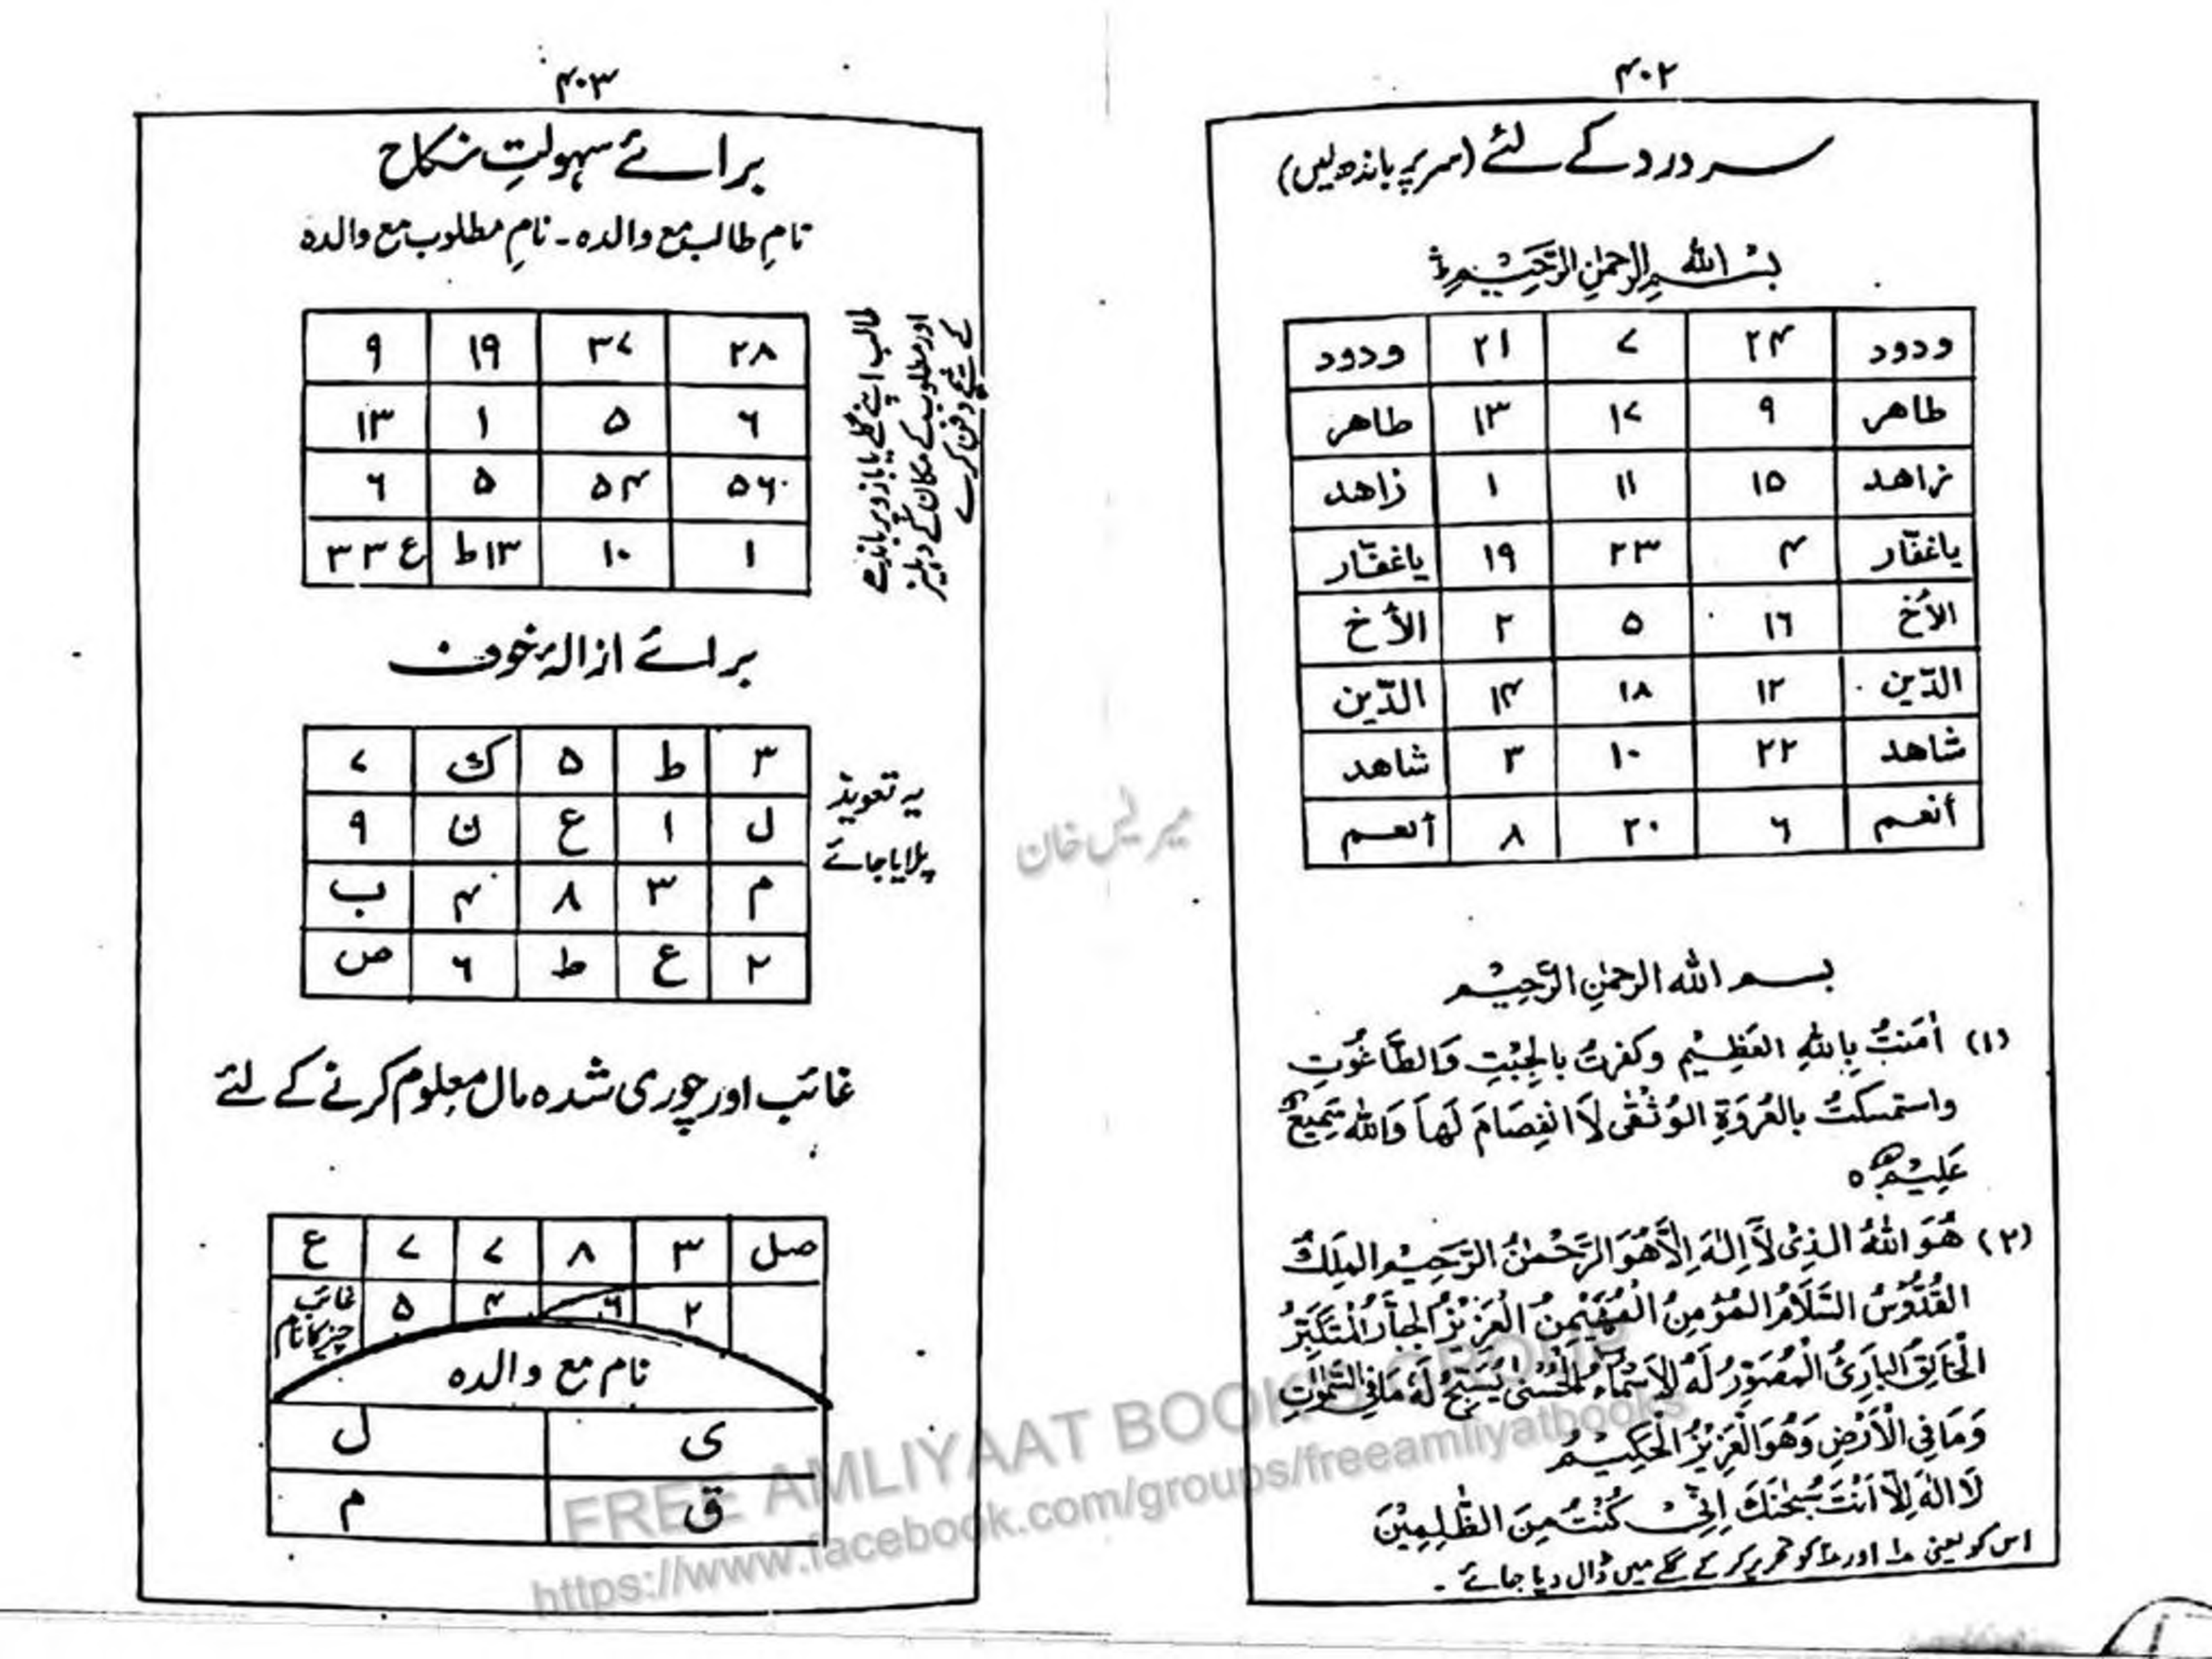 ۴۰۲
سر درد کے لئے (سر پر باندھ لیں)
بِسْمِ اللهِ الرَّحْمٰنِ الرَّحِيْمِ ط
ودود ۲۴ ۷ ۲۱ ودود
طاهر ۹ ۱۷ ۱۳ طاهر
زاهد ۱۵ ۱۱ ۱ زاهد
ياغفّار ۴ ۲۳ ۱۹ ياغفّار
الأخ ۱۶ ۵ ۲ الأخ
الدّين ۱۲ ۱۸ ۱۴ الدّين
شاهد ۲۲ ۱۰ ۳ شاهد
أنعم ۶ ۲۰ ۸ أنعم
بسم الله الرحمٰنِ الرَّحِيْم
(۱) اٰمَنْتُ بِاللهِ العَظِيْمِ وكفرتُ بالجِبْتِ وَالطَّاغُوتِ
واستمسكتُ بالعُروَةِ الوُثْقٰى لَا انْفِصَامَ لَهَا وَاللهُ سَمِيعٌ
عَلِيْمٌ ه
(۲) هُوَ اللهُ الذِىْ لَآ اِلٰهَ اِلَّا هُوَ الرَّحْمٰنُ الرَّحِيْمُ المَلِكُ
القُدُّوْسُ السَّلَامُ المُؤمِنُ الْمُهَيْمِنُ الْعَزِيْزُ الجبَّارُ الْمُتَكَبِّرُ
الْخَالِقُ البَارِئُ الْمُصَوِّرُ لَهُ الاَسْمَاءُ الْحُسْنٰى يُسَبِّحُ لَهٗ مَا فِى السَّمٰوٰتِ
وَمَا فِى الْاَرْضِ وَهُوَ الْعَزِيْزُ الْحَكِيْمُ
لَا اِلٰهَ اِلَّا اَنْتَ سُبْحٰنَكَ اِنِّىْ كُنْتُ مِنَ الظّٰلِمِيْنَ
اس کو یعنی ۱ اور ۲ کو تحریر کر کے گلے میں ڈال دیا جائے ۔
۴۰۳
برائے سہولتِ نکاح
نامِ طالب مع والدہ ۔ نامِ مطلوب مع والدہ
۲۸ ۳۷ ۱۹ ۹
۶ ۵ ۱ ۱۳
۵۶ ۵۴ ۵ ۶
۱ ۱۰ ۱۳ ط ع ۳۳
طالب اپنے گلے یا بازو پر باندھے
اور مطلوب کے مکان کے دہلیز
کے نیچے دفن کرے
برائے ازالۂ خوف
۳ ط ۵ ك ۷
ل ا ع ن ۹
م ۳ ۸ ۴ ب
۲ ع ط ۶ ص
یہ تعویذ
پلایا جائے
غائب اور چوری شدہ مال معلوم کرنے کے لئے
صل ۳ ۸ ۷ ۷ ع
۲ ۶ ۴ ۵ غائب
چیز کا نام
نام مع والدہ
ی ل
ق م
میر لیس خان
FREE AMLIYAAT BOOKS GROUP
https://www.facebook.com/groups/freeamliyatbooks